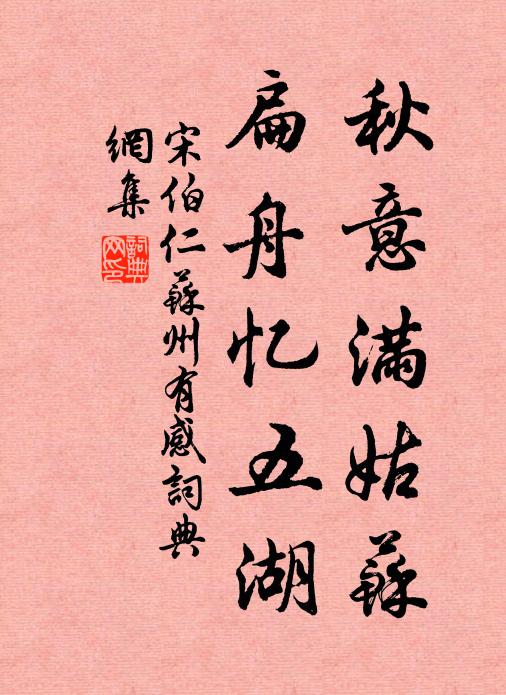 秋意满姑蘇
扁舟忆五湖
宋伯仁蘇州有感詞典
網集
詞典網印